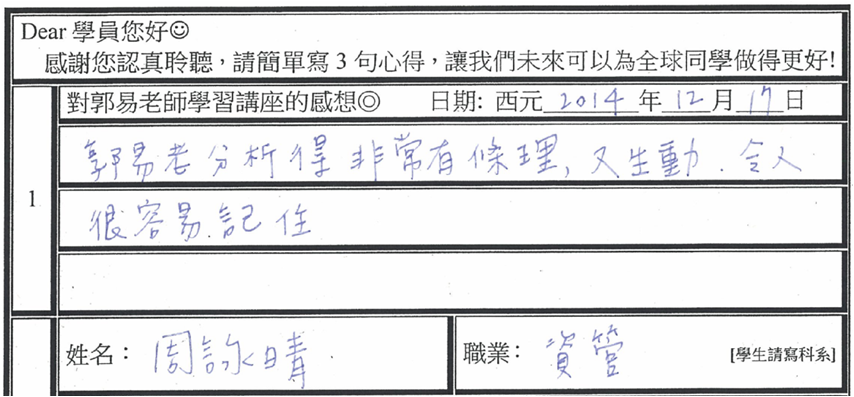 Dear 學員您好☺
感謝您認真聆聽，請簡單寫 3 句心得，讓我們未來可以為全球同學做得更好!
1
對郭易老師學習講座的感想◎ 日期: 西元 2014 年 12 月 17 日
郭易老分析得非常有條理，又生動．令人
很容易記住
姓名： 周詠晴 職業： 資管 [學生請寫科系]